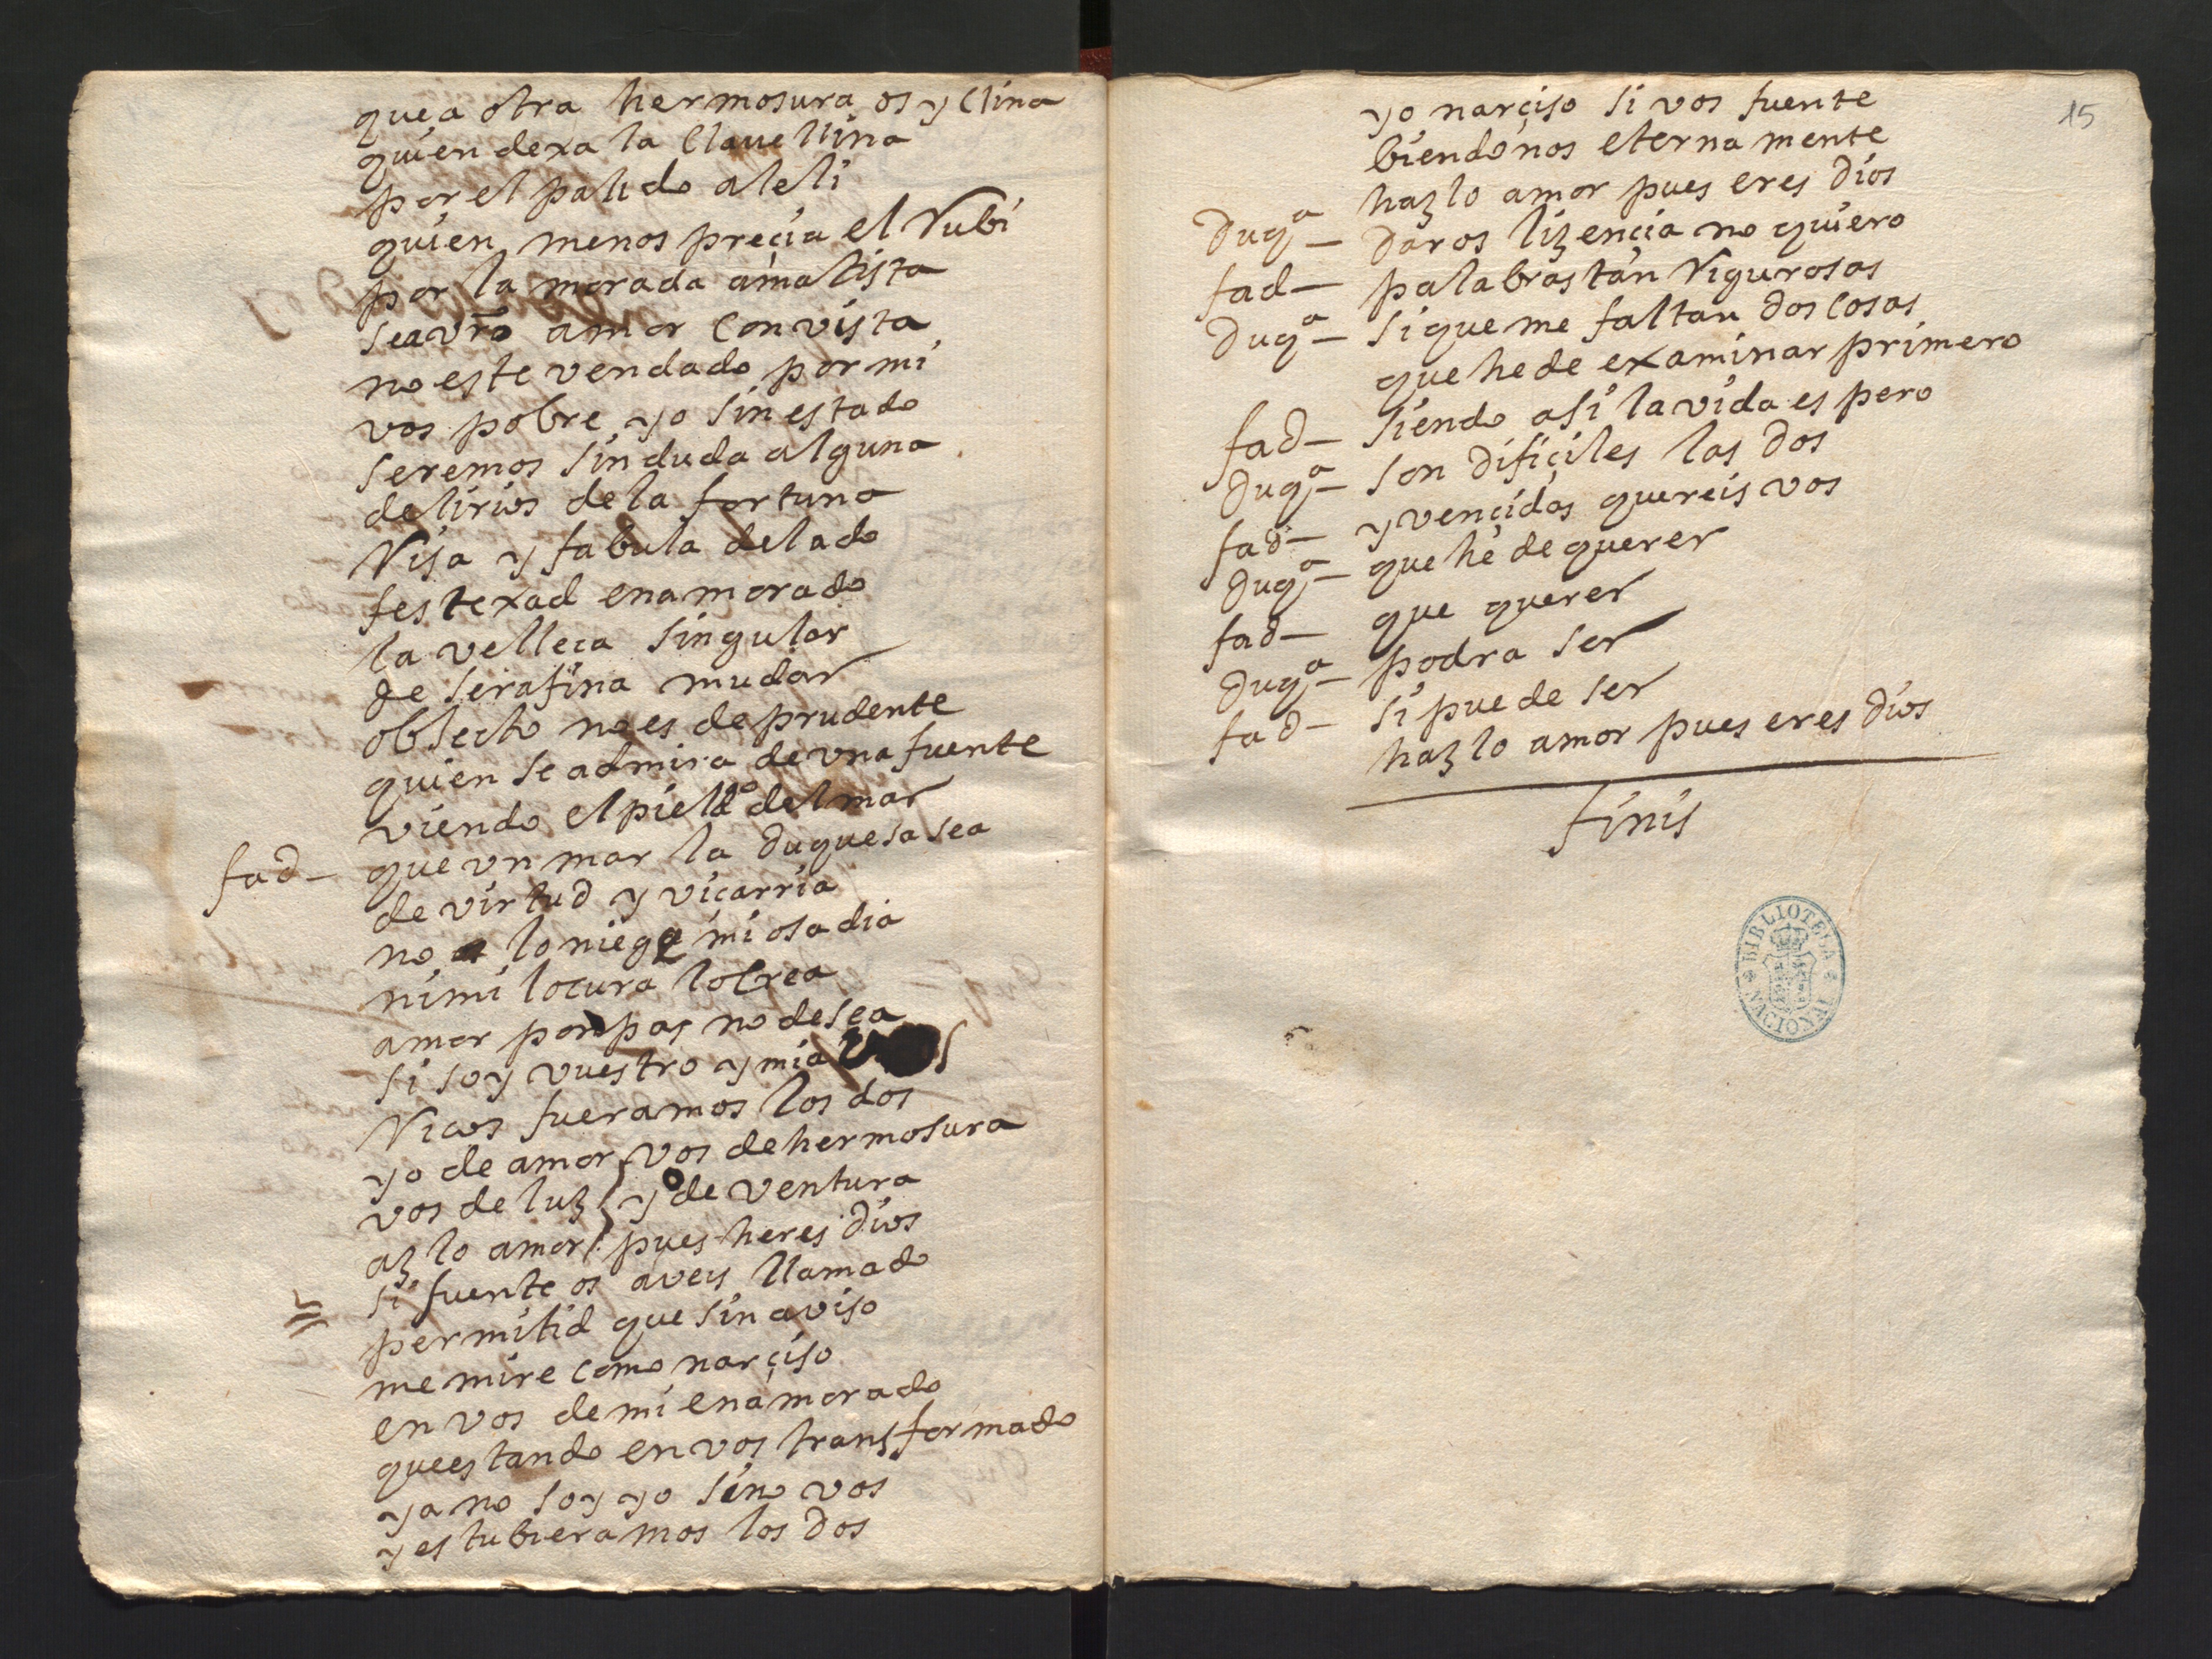 que a otra hermosura os yClina
quien dexa la Clavellina
por el palido aleli
quien menos preçia el Rubi
por la morada amatista
sea vro amor Con vista
no este vendado por mi
vos pobre yo sin estado
seremos sin duda alguna
delirios de la fortuna
Risa y fabula del ado
festexad enamorado
la velleça singular
de serafina mudar
obJecto no es de prudente
quien se admira de vna fuente
viendo el pielago del mar
fad— que vn mar la duquesa sea
de virtud y viçarria
no lo niega mi osadia
ni mi locura lo Crea
amor pompas no desea
si soy vuestro y mia
Ricos fueramos los dos
yo de amor vos de hermosura
vos de luz yo de ventura
azlo amor pues heres dios
si fuente os aveis llamado
permitid que sin aviso
me mire como narçiso
en vos de mi enamorado
que estando en vos transformado
ya no soy yo sino vos
y estubieramos los dos
15
yo narçiso si vos fuente
biendonos eterna mente
hazlo amor pues eres dios
Duqª— daros lizençia no quiero
fad— palabras tan Rigurosas
Duqª— si que me faltan dos cosas
que he de examinar primero
fad— siendo asi la vida espero
Duqª— son difiçiles las dos
fad— y vençidas quereis vos
Duqª— que he de querer
fad— que querer
Duqª— podra ser
fad— si puede ser
hazlo amor pues eres dios
finis
BIBLIOTECA NACIONAL